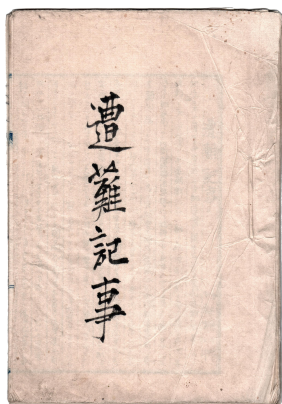 遭難記事